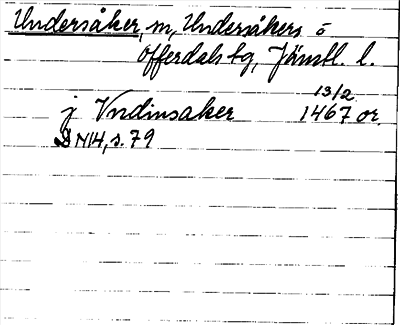 Undersåker, m, Undersåkers o
Offerdals tg, Jämtl. l.
13/2
j Vndinsaker 1467 or.
DN14, s. 79